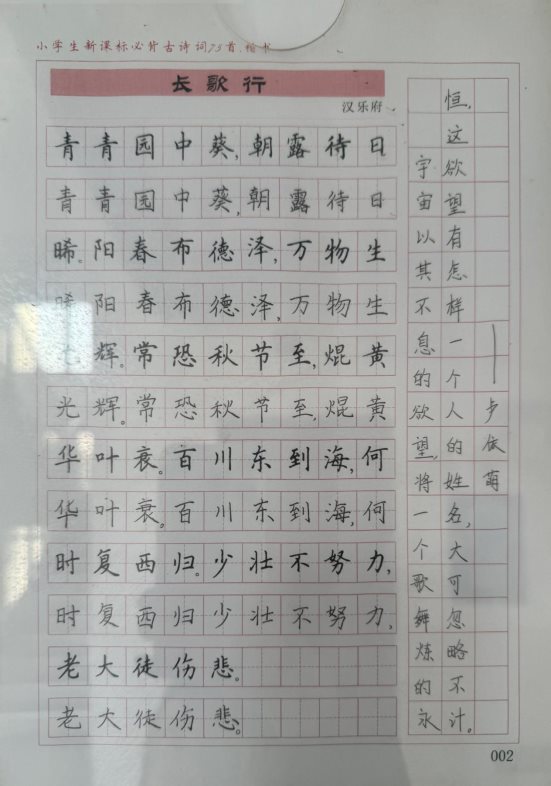 小学生新课标必背古诗词75首.楷书
长歌行
汉乐府
青青园中葵,朝露待日
青青园中葵,朝露待日
晞。阳春布德泽,万物生
晞阳春布德泽,万物生
光辉。常恐秋节至,焜黄
光辉。常恐秋节至,焜黄
华叶衰。百川东到海,何
华叶衰。百川东到海,何
时复西归。少壮不努力,
时复西归少壮不努力,
老大徒伤悲。
老大徒伤悲。
宇宙以其不息的欲望,将一个歌舞炼的永
恒,这欲望有怎样一个人的姓名,大可忽略不计。
——卢依萌
002